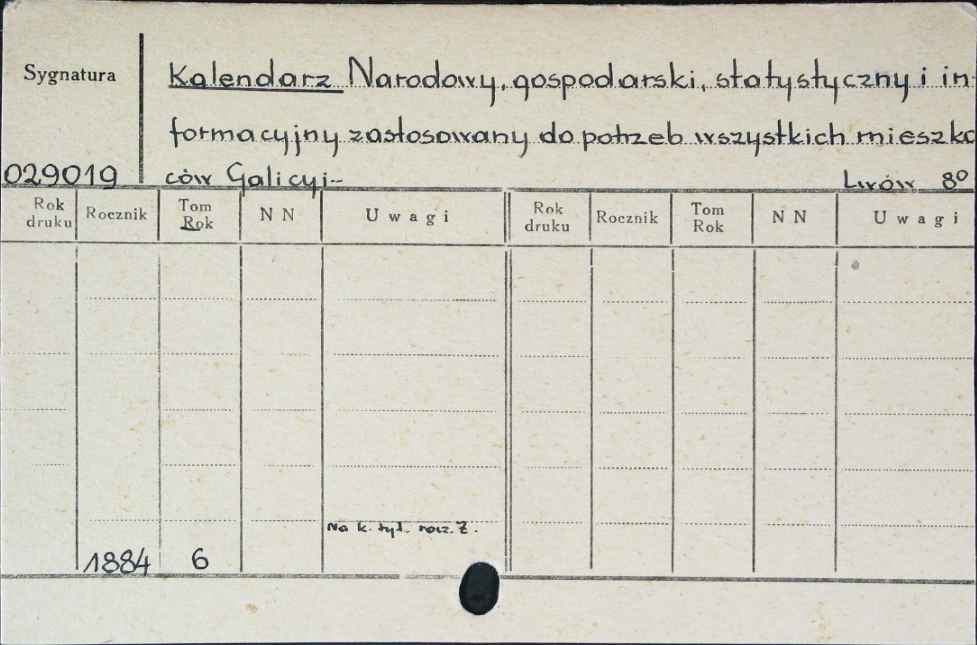 Sygnatura
Kalendarz Narodowy, gospodarski, statystyczny i in
formacyjny zastosowany do potrzeb wszystkich mieszka
029019 ców Galicyi– Lwów 8º
Rok druku Rocznik Tom Rok N N Uwagi Rok druku Rocznik Tom Rok N N Uwagi
Na k. tyt. rocz.
1884 6